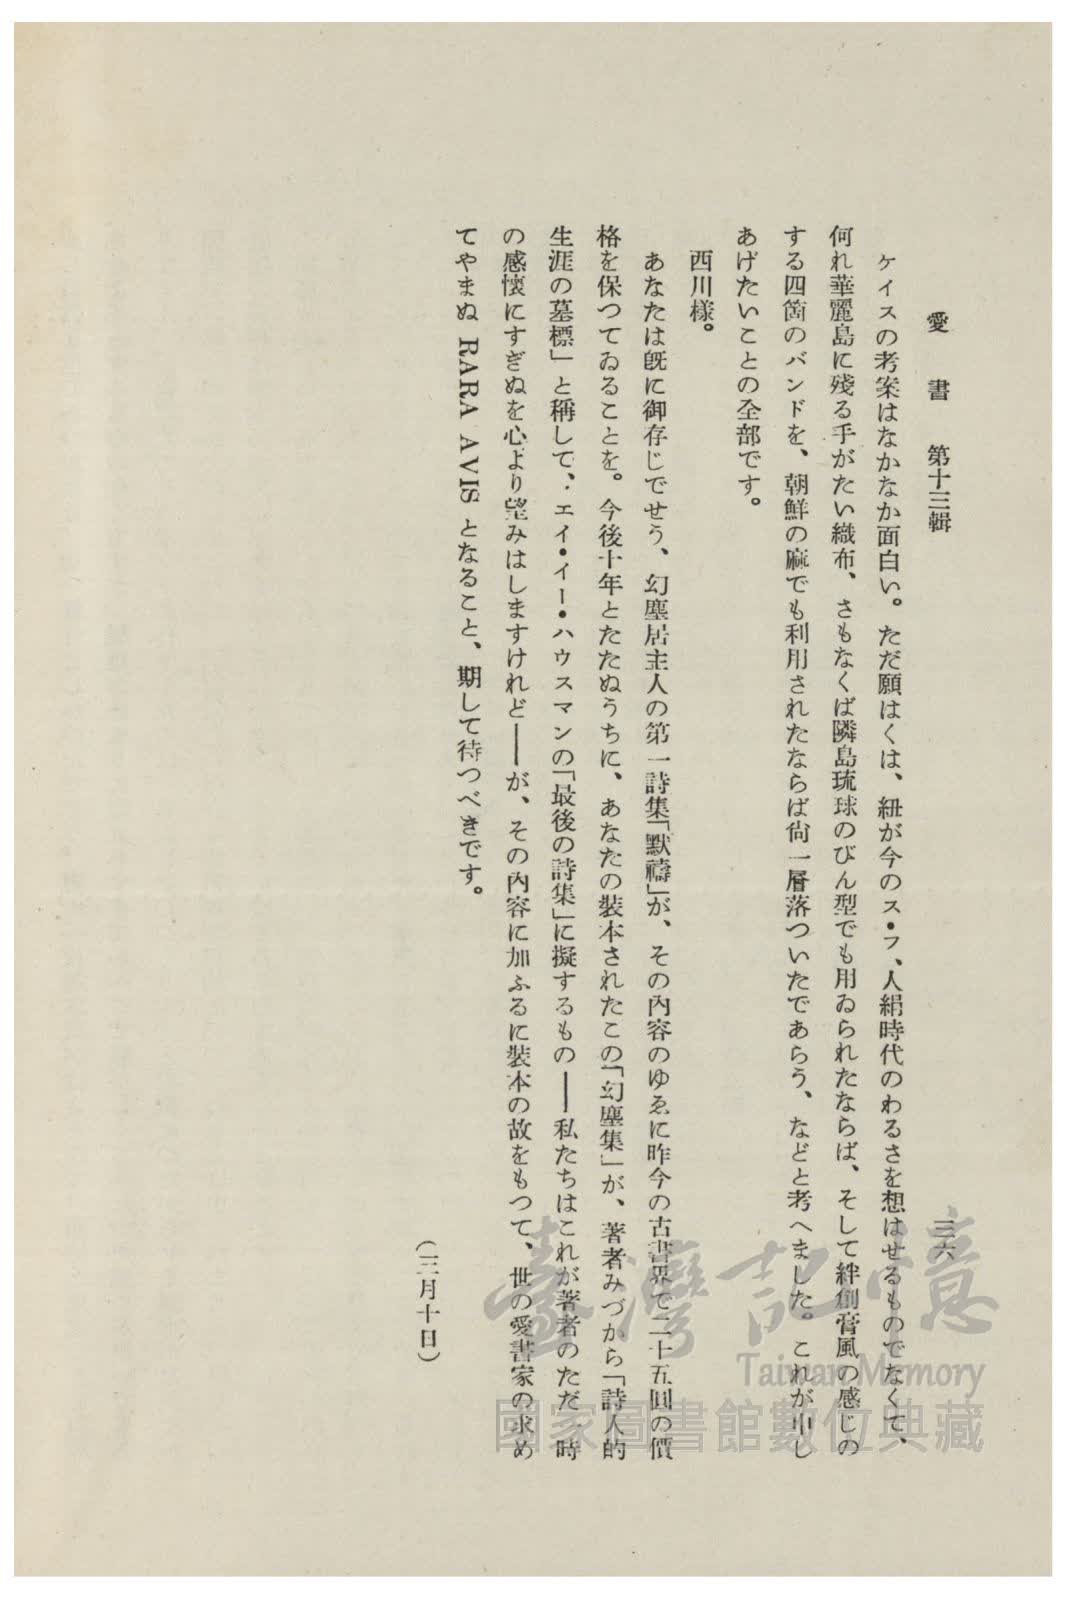 愛書 第十三輯
三六
ケイスの考案はなかなか面白い。ただ願はくは、紐が今のス・フ、人絹時代のわるさを想はせるものでなくて、
何れ華麗島に殘る手がたい織布、さもなくば隣島琉球のびん型でも用ゐられたならば、そして絆創膏風の感じの
する四箇のバンドを、朝鮮の麻でも利用されたならば尙一層落ついたであらう、などと考へました。これが申し
あげたいことの全部です。
西川樣。
あなたは旣に御存じでせう、幻塵居主人の第一詩集「默禱」が、その內容のゆゑに昨今の古書界で二十五圓の價
格を保つてゐることを。今後十年とたたぬうちに、あなたの裝本されたこの「幻塵集」が、著者みづから「詩人的
生涯の墓標」と稱して、エイ・イー・ハウスマンの「最後の詩集」に擬するもの――私たちはこれが著者のただ一時
の感懷にすぎぬを心より望みはしますけれど――が、その內容に加ふるに裝本の故をもつて、世の愛書家の求め
てやまぬ RARA AVIS となること、期して待つべきです。
（三月十日）
臺灣記憶
Taiwan Memory
國家圖書館數位典藏